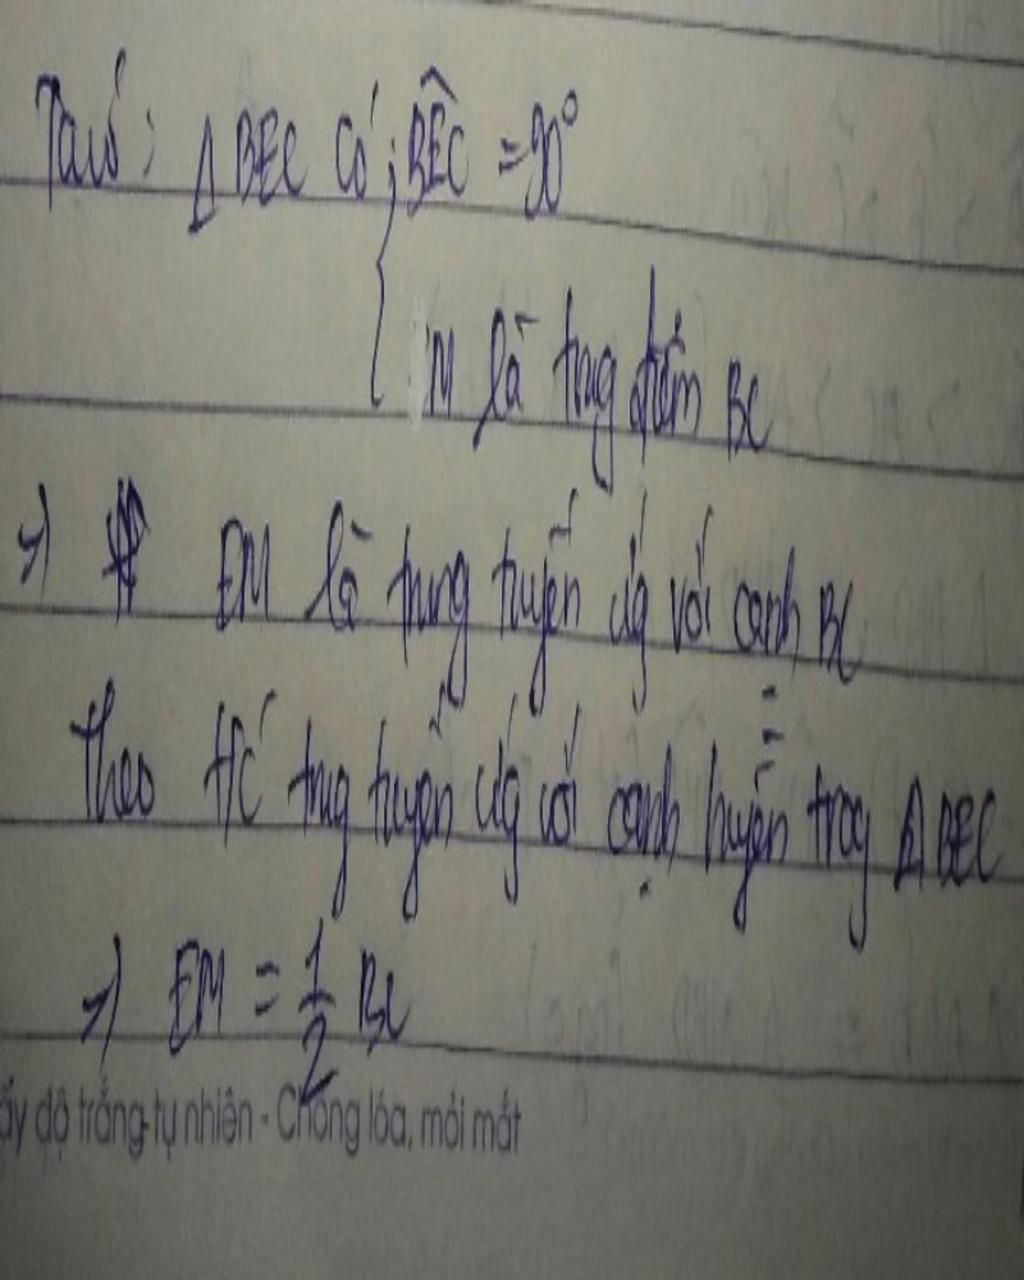 Ta có: Δ BEC có; BÊC = 90°
M là trug điểm BC
=> EM là trung tuyến ứg với cạnh BC
Theo t/c trug tuyến ứg với cạnh huyền trog Δ BEC
=> EM = 1/2 BC
ấy độ trắng tự nhiên - Chống lóa, mỏi mắt